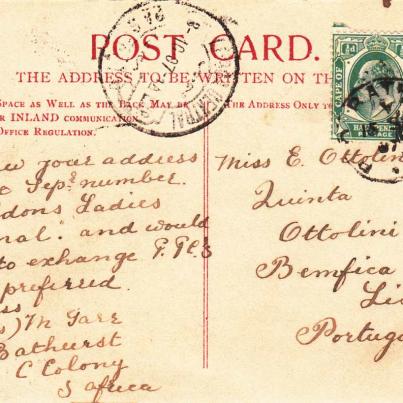 POST CARD.
THE ADDRESS TO BE WRITTEN ON TH
SPACE AS WELL AS THE BACK MAY BE
R INLAND COMMUNICATION
OFFICE REGULATION.
THE ADDRESS ONLY TO
CAPE OF
HALF PENNY
POSTAGE
w your address
e Sepr number.
dons Ladies
nal" and would
to exchange P.Pc's
preferred.
ss
s) M Garr
Bathurst
C Colony
S africa
Miss E. Ottolin
Quinta
Ottolini
Bemfica
Li
Portuga